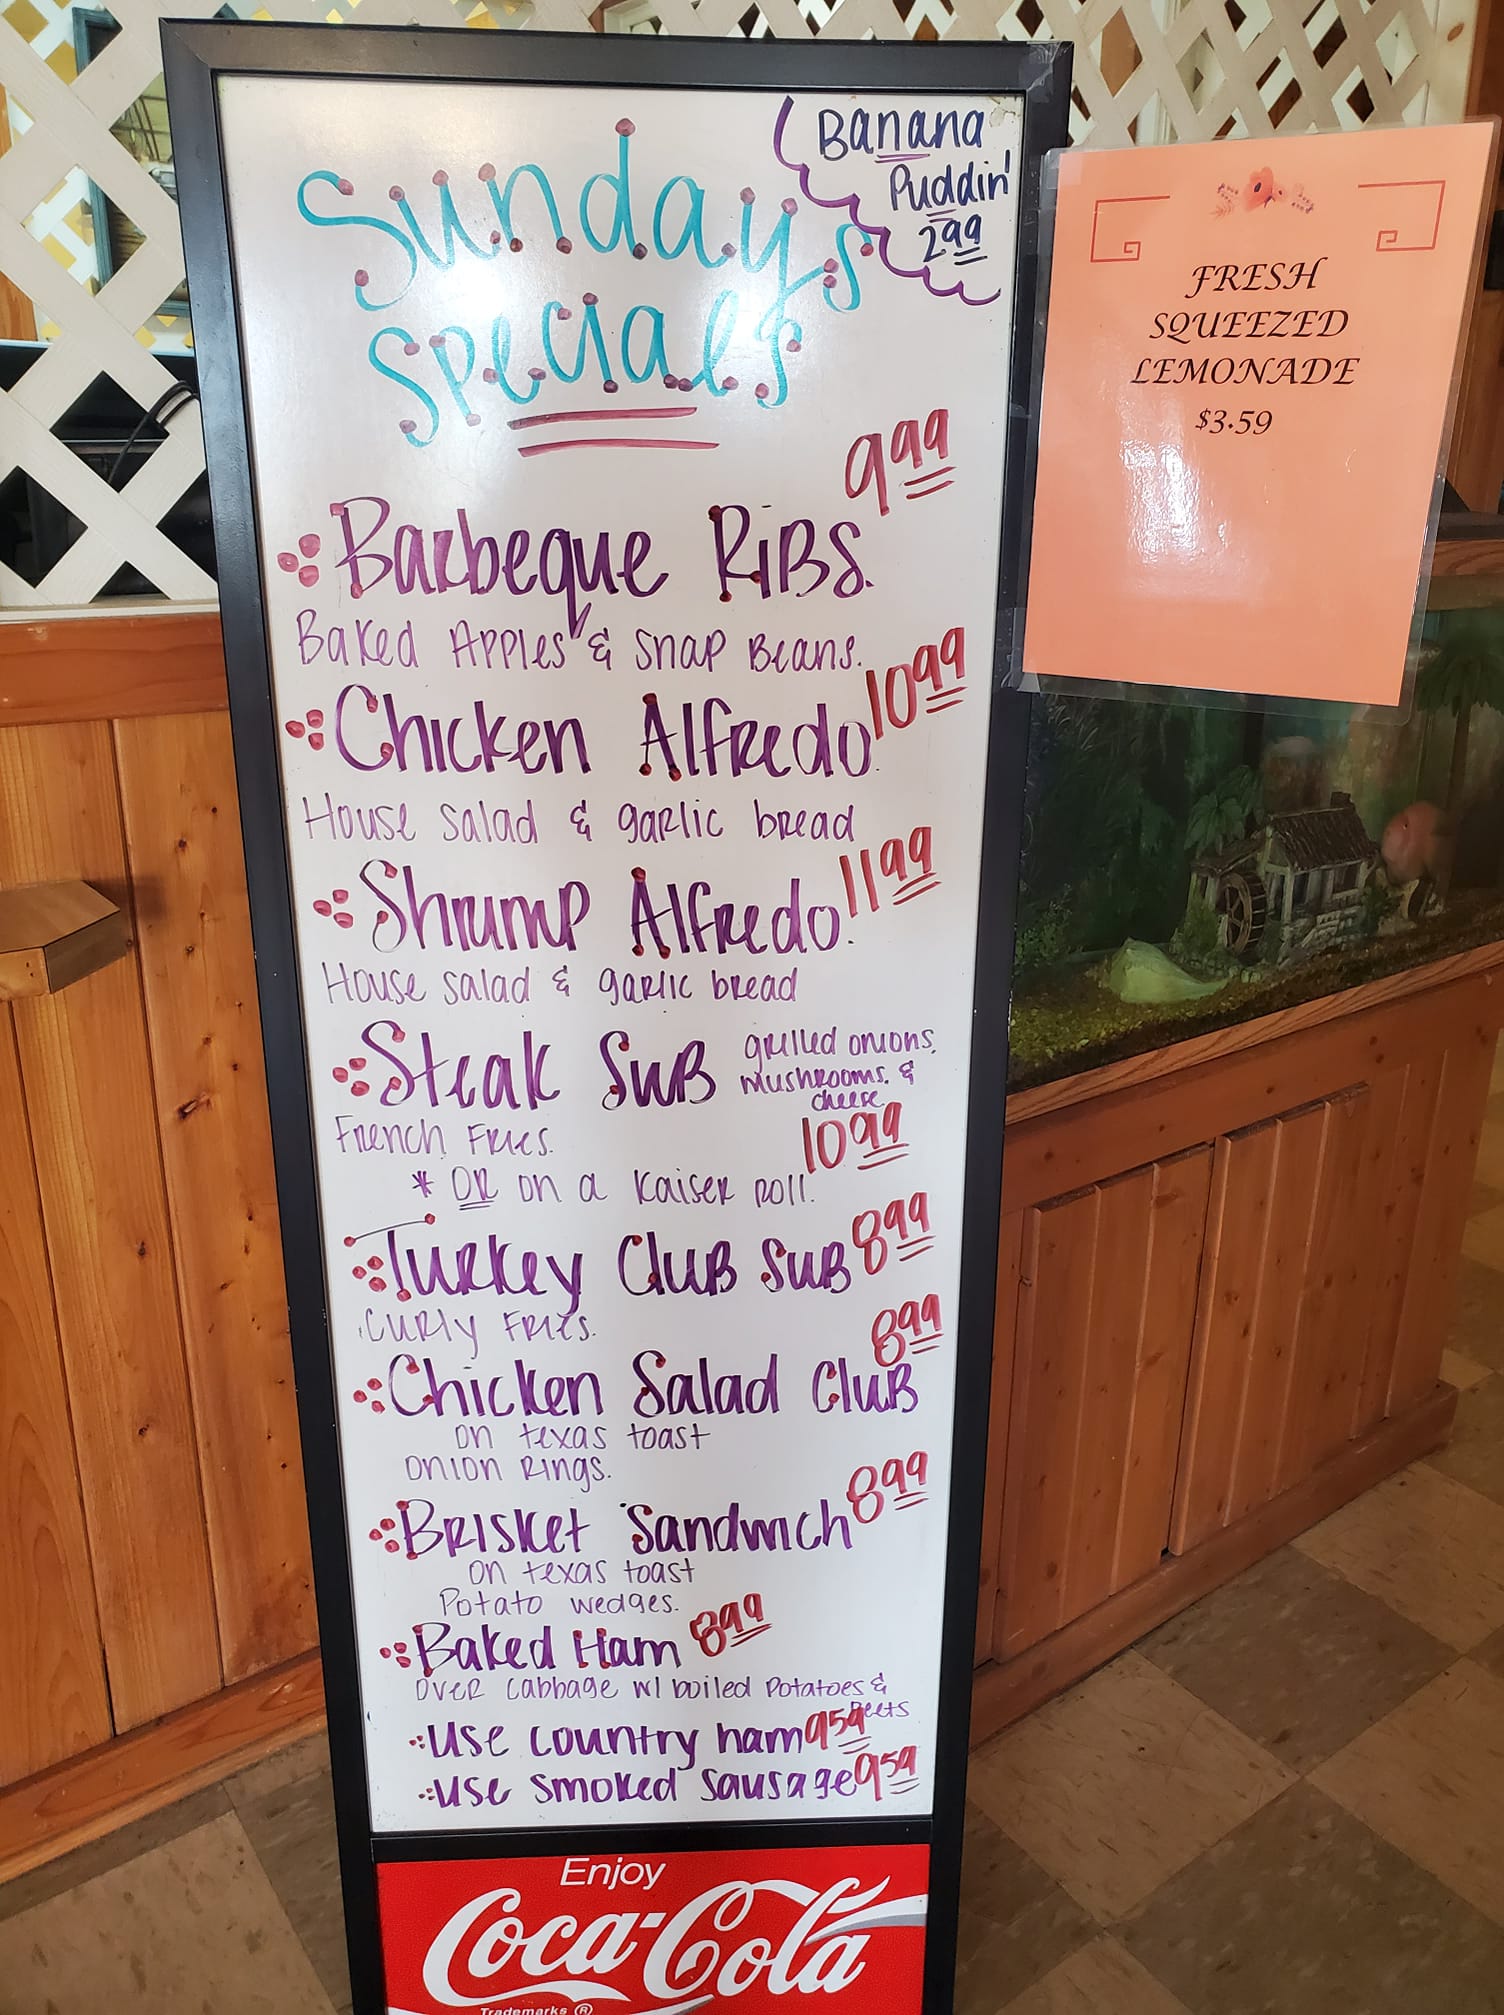 Banana
Puddin'
2.99
Sunday's
Specials
9.99
Barbeque Ribs.
Baked Apples & Snap Beans.
Chicken Alfredo 10.99
House salad & garlic bread
Shrimp Alfredo. 11.99
House salad & garlic bread
Steak Sub grilled onions,
mushrooms, &
cheese
French Fries. 10.99
* OR on a Kaiser roll.
Turkey Club Sub 8.99
Curly Fries.
8.99
Chicken Salad Club
on texas toast
onion rings.
Brisket Sandwich 8.99
on texas toast
Potato wedges.
Baked Ham 8.99
over cabbage w/ boiled Potatoes &
Beets
Use country ham 9.59
Use smoked sausage 9.59
Enjoy
Coca-Cola
Trademarks ®
FRESH
SQUEEZED
LEMONADE
$3.59